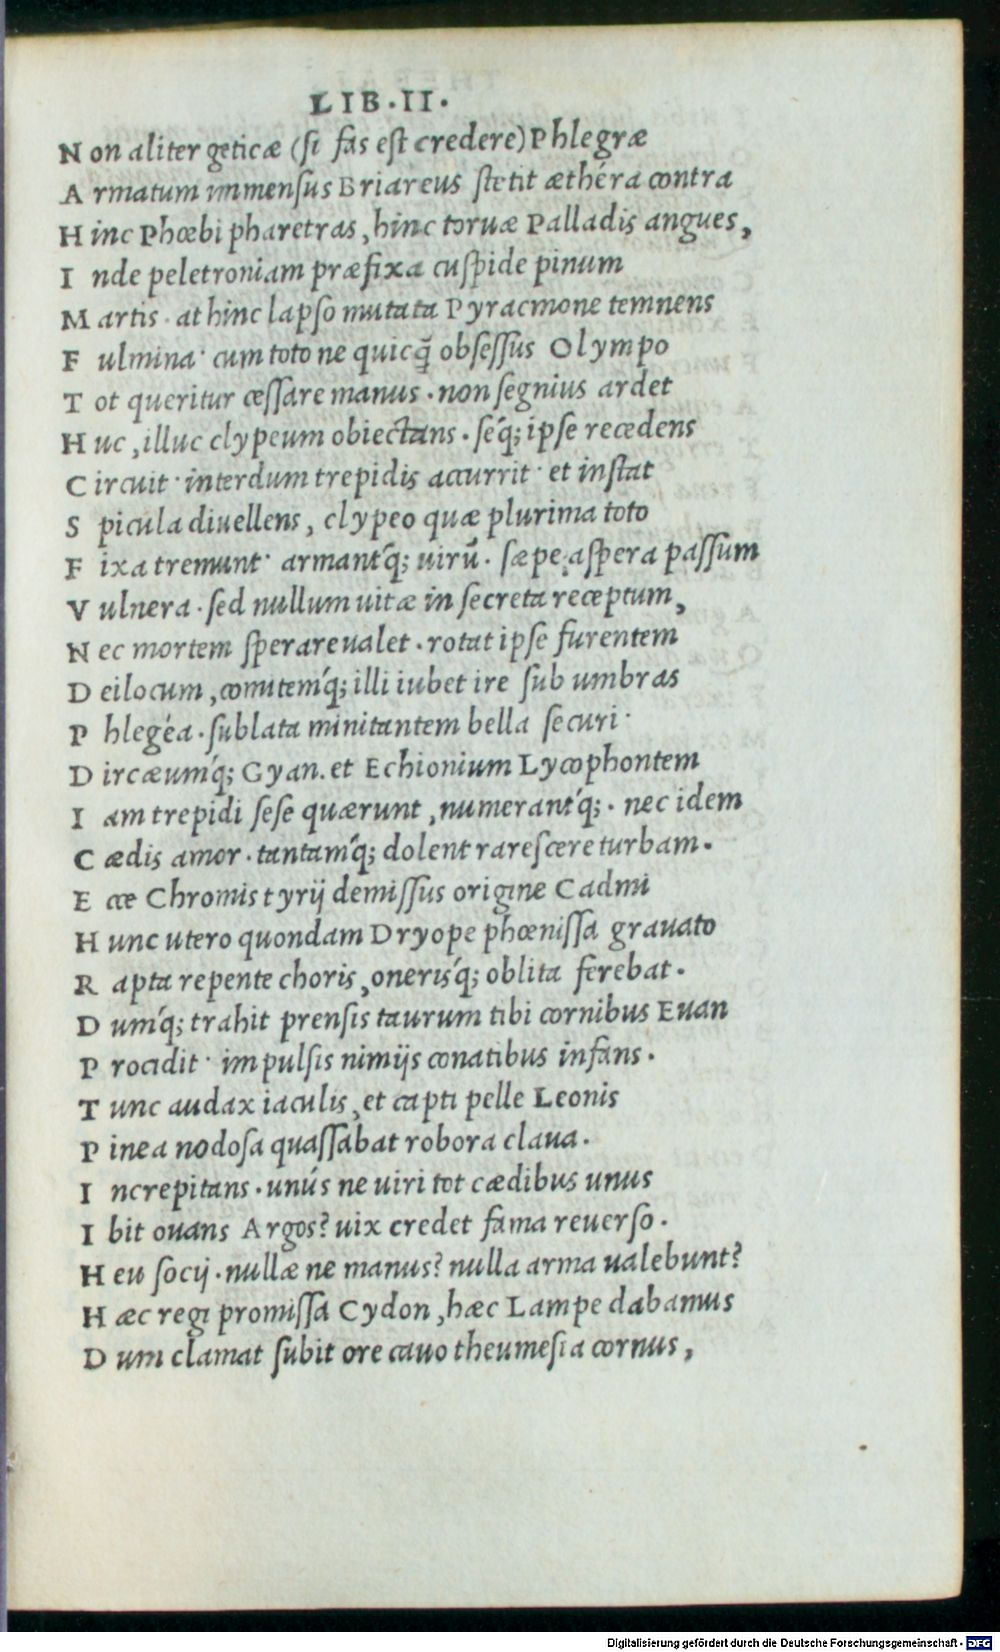 LIB.II.
N on aliter geticæ (si fas est credere) Phlegræ
A rmatum immensus Briareus stetit æthéra contra
H inc Phœbi pharetras, hinc toruæ Palladis angues,
I nde peletroniam præfixa cuspide pinum
M artis. at hinc lapso mutata Pyracmone temnens
F ulmina· cum toto ne quicq̃ obsessus Olympo
T ot queritur cessare manus. non segnius ardet
H uc, illuc clypeum obiectans. seq́; ipse recedens
C ircuit· interdum trepidis accurrit· et instat
S picula diuellens, clypeo quæ plurima toto
F ixa tremunt· armantq́; uirũ. sæpe aspera passum
V ulnera. sed nullum uitæ in secreta receptum,
N ec mortem sperare ualet. rotat ipse furentem
D eilocum, comitemq́; illi iubet ire sub umbras
P hlegéa. sublata minitantem bella securi·
D ircæumq́; Gyan. et Echionium Lycophontem
I am trepidi sese quærunt, numerantq́;. nec idem
C ædis amor. tantamq́; dolent rarescere turbam.
E cce Chromis tyrij demissus origine Cadmi
H unc utero quondam Dryope phœnissa grauato
R apta repente choris, onerisq́; oblita ferebat.
D umq́; trahit prensis taurum tibi cornibus Euan
P rocidit· impulsis nimijs conatibus infans.
T unc audax iaculis, et capti pelle Leonis
P inea nodosa quassabat robora claua.
I ncrepitans. unús ne uiri tot cædibus unus
I bit ouans Argos? uix credet fama reuerso.
H eu socij. nullæ ne manus? nulla arma ualebunt?
H æc regi promissa Cydon, hæc Lampe dabamus
D um clamat subit ore cauo theumesia cornus,
Digitalisierung gefördert durch die Deutsche Forschungsgemeinschaft - DFG